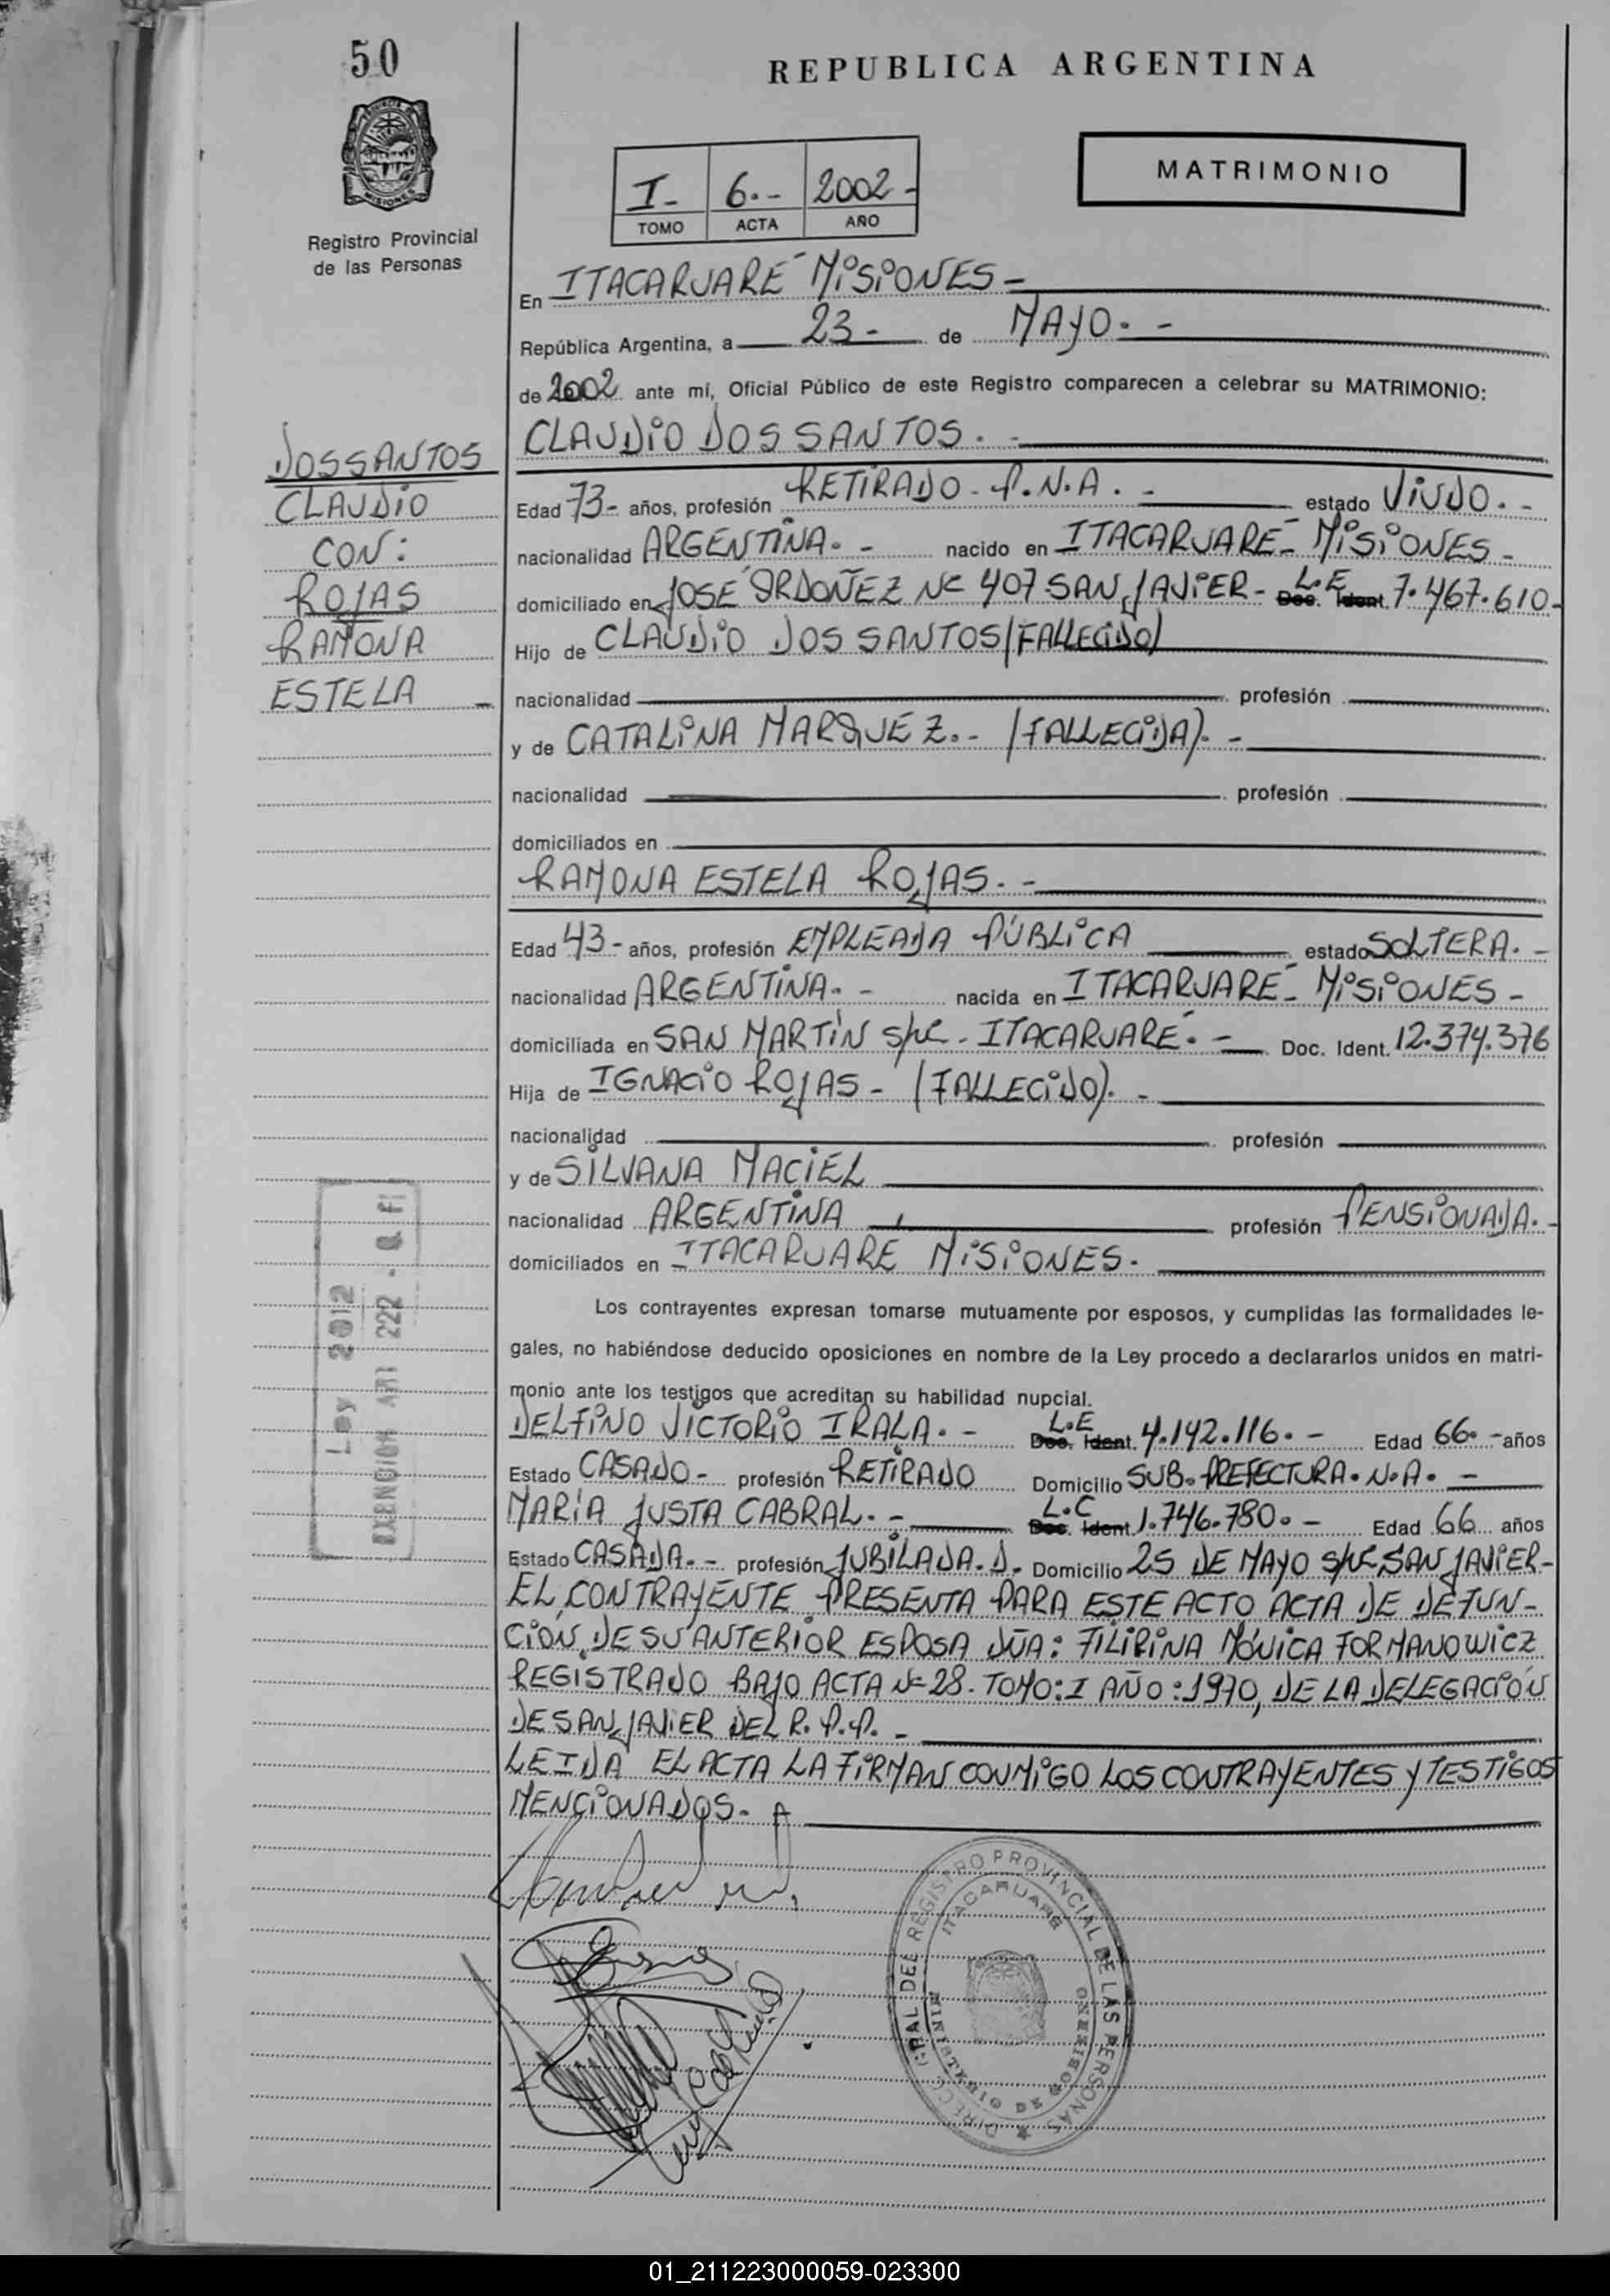 50
REPUBLICA ARGENTINA
MISIONES
Registro Provincial
de las Personas
I- 6.- 2002-
TOMO ACTA AÑO
MATRIMONIO
En ITACARUARÉ MISIONES-
República Argentina, a 23- de MAYO.-
de 2002 ante mí, Oficial Público de este Registro comparecen a celebrar su MATRIMONIO:
DOS SANTOS
CLAUDIO
CON:
ROJAS
RAMONA
ESTELA -
CLAUDIO DOS SANTOS.-
Edad 73- años, profesión RETIRADO-P.N.A.- estado VIUDO.-
nacionalidad ARGENTINA.- nacido en ITACARUARÉ- MISIONES-
domiciliado en JOSÉ ORDOÑEZ Nº 407 SAN JAVIER- Doc. Ident. L.E 7.467.610-
Hijo de CLAUDIO DOS SANTOS (FALLECIDO)
nacionalidad profesión
y de CATALINA MARQUEZ.- (FALLECIDA).-
nacionalidad profesión
domiciliados en
RAMONA ESTELA ROJAS.-
Edad 43- años, profesión EMPLEADA PÚBLICA estado SOLTERA.-
nacionalidad ARGENTINA.- nacida en ITACARUARÉ- MISIONES-
domiciliada en SAN MARTÍN S/Nº- ITACARUARÉ.- Doc. Ident. 12.374.376
Hija de IGNACIO ROJAS- (FALLECIDO).-
nacionalidad profesión
y de SILVANA MACIEL
nacionalidad ARGENTINA profesión PENSIONADA.-
domiciliados en ITACARUARE MISIONES.
Los contrayentes expresan tomarse mutuamente por esposos, y cumplidas las formalidades le-
gales, no habiéndose deducido oposiciones en nombre de la Ley procedo a declararlos unidos en matri-
monio ante los testigos que acreditan su habilidad nupcial.
DELFINO VICTORIO IRALA.- Doc. Ident. L.E 4.142.116.- Edad 66.- años
Estado CASADO- profesión RETIRADO Domicilio SUB-PREFECTURA.N.A.-
MARÍA JUSTA CABRAL.- Doc. Ident. L.C 1.746.780.- Edad 66 años
Estado CASADA.- profesión JUBILADA.D. Domicilio 25 DE MAYO S/Nº SAN JAVIER-
EL CONTRAYENTE PRESENTA PARA ESTE ACTO ACTA DE DEFUN-
CIÓN DE SU ANTERIOR ESPOSA DÑA: FILIPINA MÓNICA FORMANOWICZ
REGISTRADO BAJO ACTA Nº 28. TOMO: I AÑO: 1970, DE LA DELEGACIÓN
DE SAN JAVIER DEL R.P.P.-
LEIDA EL ACTA LA FIRMAN CONMIGO LOS CONTRAYENTES Y TESTIGOS
MENCIONADOS.-
Ley 2012
EXENCION ART 222
DIRECC. GRAL DEL REGISTRO PROVINCIAL DE LAS PERSONAS
ITACARUARE
MINISTERIO DE GOBIERNO
01_211223000059-023300